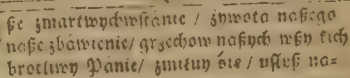 ße zmartwychwſtánie / żywotá náßego
náße zbáwienie / grzechow náßych wßyſtkich
Pánie / zmiłuy śię / vſłyß ná=